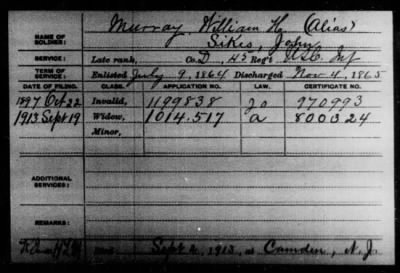 Murray, William H. (Alias)
NAME OF SOLDIER:
Sikes, John
SERVICE: Late rank, Co. D, 45 Reg't U.S.C. Inf
TERM OF SERVICE: Enlisted July 9, 1864 Discharged Nov 4, 1865
DATE OF FILING. CLASS. APPLICATION NO. LAW. CERTIFICATE NO.
1897 Oct 22 Invalid, 1199838 970993
1913 Sept 19 Widow, 1014.517 a 800324
Minor,
ADDITIONAL SERVICES:
REMARKS:
Sept 2, 1913, at Camden, N.J.